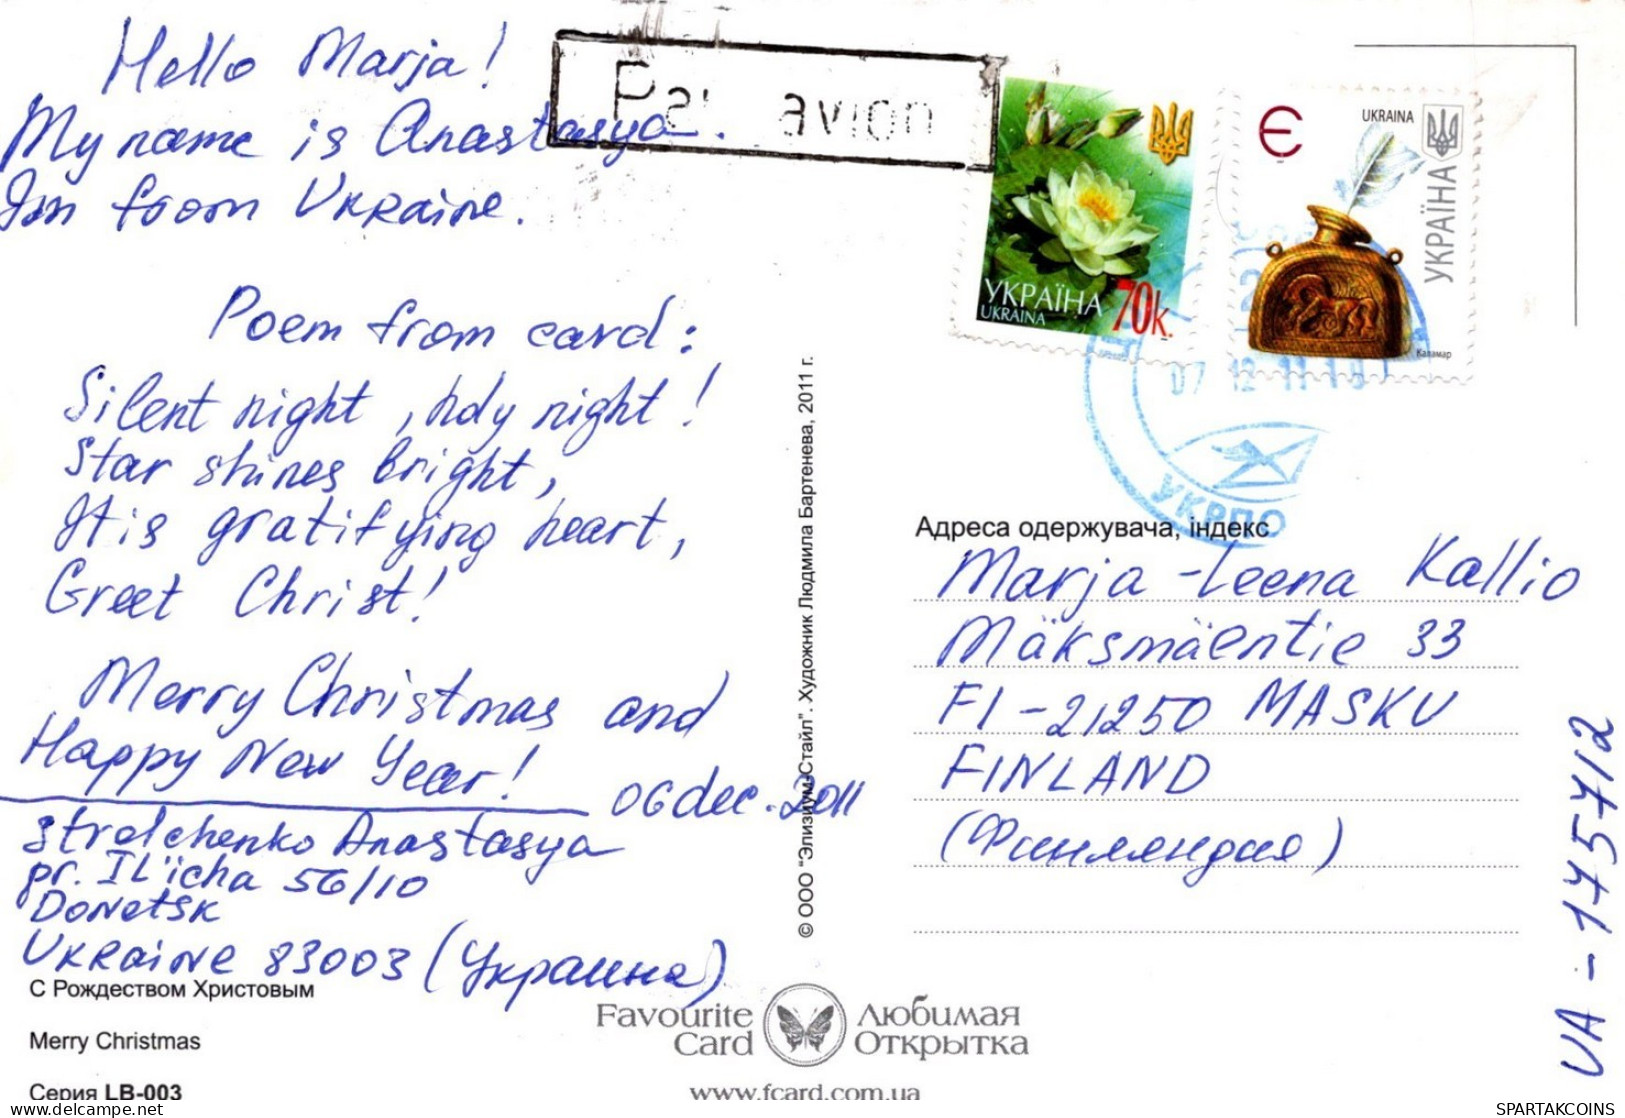 Hello Marja!
My name is Anastasya.
Im from Ukraine.
Poem from card:
Silent night, holy night!
Star shines bright,
It is gratifying heart,
Greet Christ!
Merry Christmas and
Happy New Year!
06 dec. 2011
Strelchenko Anastasya
pr. Il'icha 56/10
Donetsk
Ukraine 83003 (Украина)
С Рождеством Христовым
Merry Christmas
Серия LB-003
© ООО "Элизиум-Стайл". Художник Людмила Бартенева, 2011 г.
Favourite Card
Любимая Открытка
www.fcard.com.ua
Par avion
УКРАЇНА
UKRAINA
70k.
Є
UKRAINA
УКРАЇНА
Каламар
07 12 11
УКРПО
Адреса одержувача, індекс
Marja-Leena Kallio
Mäksmäentie 33
FI-21250 MASKU
FINLAND
(Финляндия)
UA-175712
SPARTAKCOINS